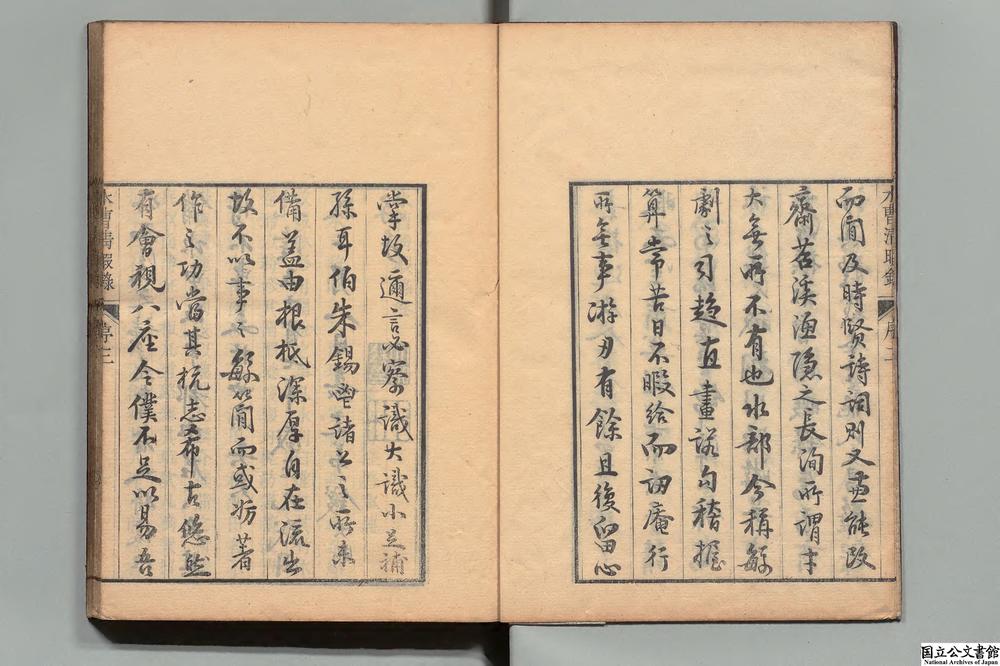 水曹清暇錄 序二
而閒及時賢詩詞則又並能改
齋苕溪漁隱之長洵所謂才
大無所不有也水部今稱繁
劇之司趨直畫諾勾稽握
算常苦日不暇給而訒庵行
所無事游刃有餘且復留心
掌故邇言必察識大識小足補
孫耳伯朱錫鬯諸公之所未
備蓋由根柢深厚自在流出
故不以事之繁簡而或妨著
作之功當其抗志希古悠然
有會視八座令僕不足以易吾
水曹清暇錄 序三
国立公文書館
National Archives of Japan